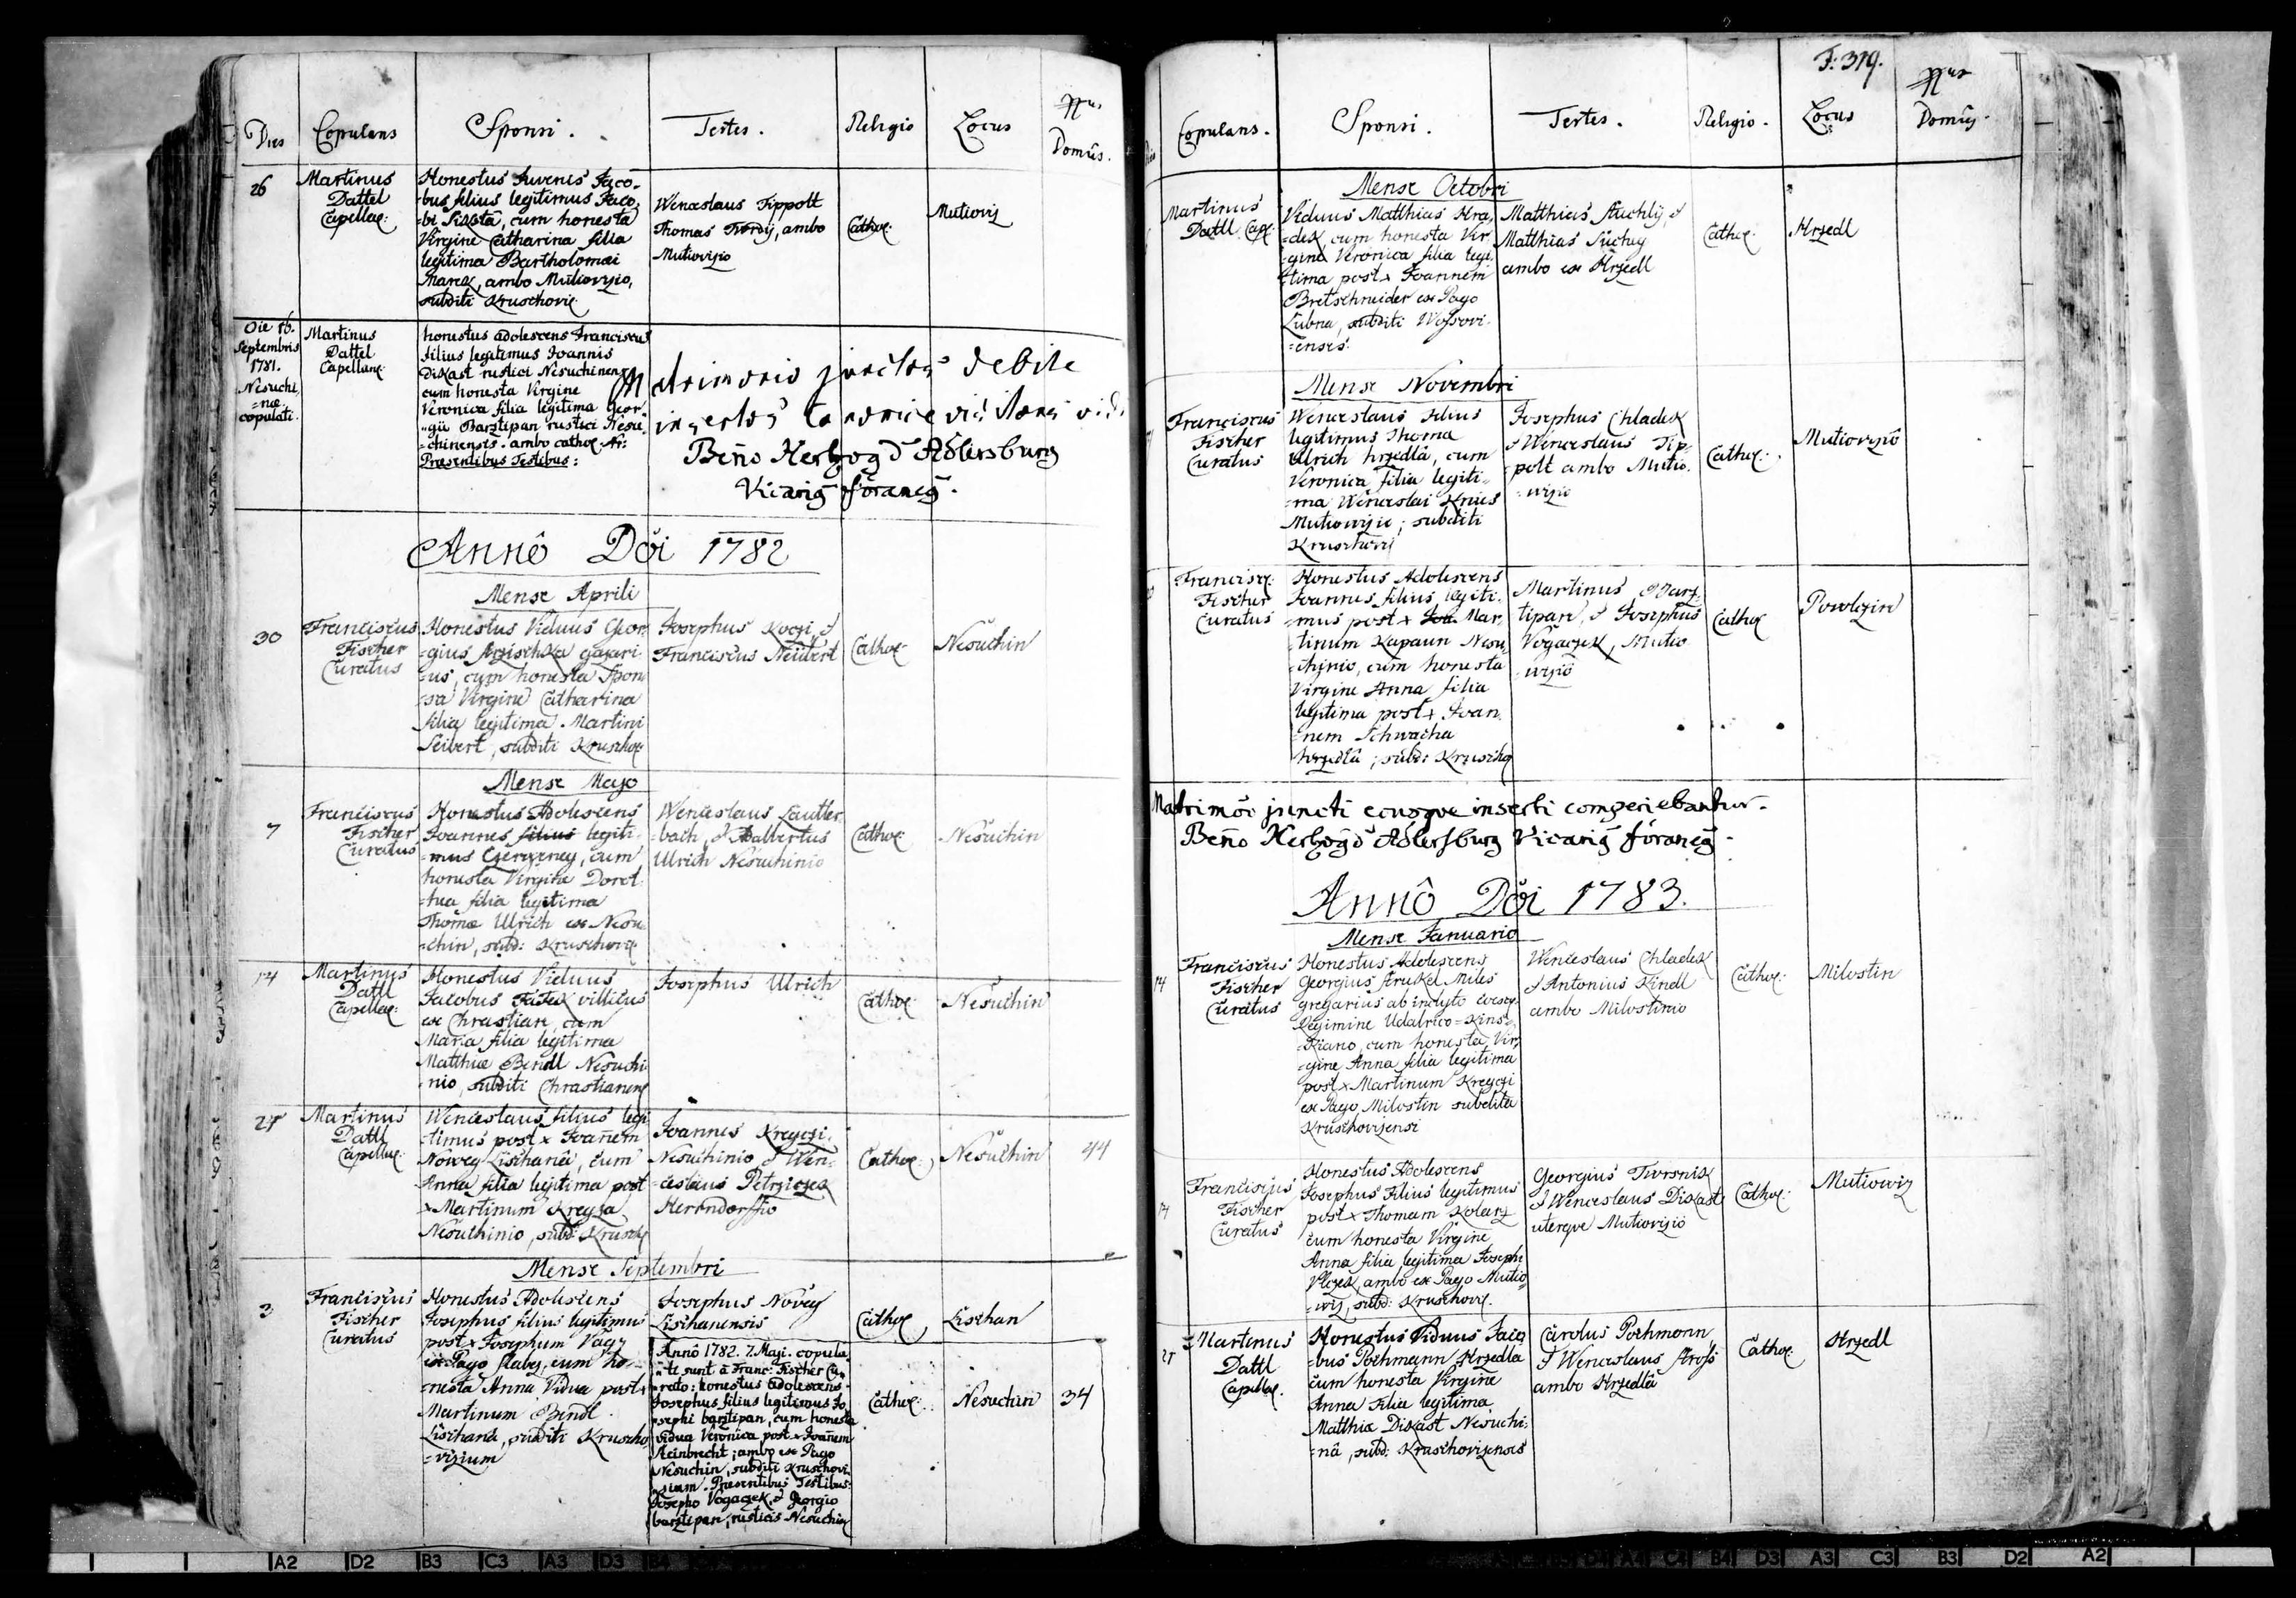 Dies Copulans Sponsi. Testes. Religio Locus Nrus Domûs.
26
Martinus
Dattel
Capellae:
Honestus Juvenis Jaco-
bus filius legitimus Jaco-
bi Sixsta, cum honesta
Virgine Catharina filia
legitima Bartholomæi
Marek, ambo Mutiovizio,
subditi Kruschovic:
Wenceslaus Tippolt
Thomas Twrdÿ, ambo
Mutiovizio
Cathol:
Mutioviz
Die 16.
Septembris
1781.
Nesuchi-
=næ
copulati.
Martinus
Dattel
Capellane:
honestus adolescens Franciscus
filius legitimus Joannis
Dikast rustici Nesuchinens:
cum honesta Virgine
Veronica filia legitima Geor-
gii Barztipan rustici Nesu-
=chinensis. ambo cathol:
Præsentibus Testibus:
Matrimonio junctos debite
insertos canonice visitans vidi
Beno Hertzog d'Adlersburg
Vicarius foraneus.
Annô Dñi 1782
Mense Aprili
30
Franciscus
Fischer
Curatus
Honestus Viduus Geor-
=gius
=us, cum honesta Spon
=sa Virgine Catharina
filia legitima Martini
Seibert, subditi Kruscho
Josephus Koczi, &
Franciscus Neidert
Cathol:
Nesuchin
Mense Majo
7
Franciscus
Fischer
Curatus
Honestus Adolescens
Joannes filius legiti-
=mus Czerweney, cum
honesta Virgine Dorot-
=hea filia legitima
Thomæ Ulrich ex Nesu-
=chin, subd: Kruschovic
Wenceslaus Lautter-
=bach, & Adalbertus
Ulrich Nesuchinio
Cathol:
Nesuchin
14
Martinus
Dattl
Capellae:
Honestus Viduus
Jacobus villicus
ex Chrastian, cum
Maria filia legitima
Matthiæ Bendl Nesuchi
=nio, subditi Chrastianens
Josephus Ulrich
Cathol:
Nesuchin
27
Martinus
Dattl
Capellae:
Wenceslaus filius legi
=timus post x Joañem
Nowey Lischanâ, cum
Anna filia legitima post
x Martinum Kreyza
Nesuchinio, subd: Krusch
Joannes Kreyczi
Nesuchinio & Wen-
=ceslaus Petrziczek
Herrndorffio
Cathol:
Nesuchin
44
Mense Septembri
3
Franciscus
Fischer
Curatus
Honestus Adolescens
Josephus filius legitimus
post x Josephum Vagz
ex Pago Slabez, cum ho-
=nesta Anna Vidua post x
Martinum Bendl
Lischanâ, subditi Kruscho
=vizium
Josephus Novey
Lischanensis
Cathol:
Lischan
Annô 1782. 7. Maji. copula-
=ti sunt â Franc: Fischer Cu-
=rato: honestus adolescens
Josephus filius legitimus Jo-
=sephi barztipan, cum honesta
Vidua Veronica post x Joañem
Steinbrecht; ambo ex Pago
Nesuchin, subditi Kruschovi-
=zium. Præsentibus Testibus:
Josepho Vogaczek, & Georgio
barztipan, rusticis Nesuchin
Cathol:
Nesuchin
34
F: 379.
Copulans. Sponsi. Testes. Religio. Locus Nrus Domûs.
Mense Octobri
Martinus
Dattl Cap:
Viduus Matthias Hra-
=dek, cum honesta Vir-
=gine Veronica filia legi-
=tima post x Joannem
Bretschneider ex Pago
Lubna, subditi Wossovi-
=censes:
Matthias Stuchlÿ, &
Matthias Suchey
ambo ex Hrzedl
Cathol:
Hrzedl
Mense Novembri
Franciscus
Fischer
Curatus
Wenceslaus filius
legitimus Thomæ
Ulrich hrzedlâ, cum
Veronica filia legiti-
=ma Wenceslai Knies
Mutiowizio; subditi
Kruschovi
Josephus Chladek
& Wenceslaus Tip-
=polt ambo Mutio-
=wizio
Cathol:
Mutiovizio
Francisc:
Fischer
Curatus
Honestus Adolescens
Joannes filius legiti-
=mus post x Mar-
=tinum Kapaun Nesu
=chinio, cum honesta
Virgine Anna filia
legitima post x Joan-
=nem Schwacha
hrzedlâ; subd: Kruscho
Martinus Barz-
tipan, & Josephus
Vogaczek, Mutio
=wizio
Cathol
Powlczin
Matrimôo juncti ecusque inserti comperiebantur.
Beno Hertzog d'Adlersburg Vicarius foraneus.
Annô Dñi 1783.
Mense Januario
14
Franciscus
Fischer
Curatus
Honestus Adolescens
Georgius Strukel Miles
gregarius ab inclyto cæsar:
Regimine Udalrico=Kins-
=Kiano, cum honesta Vir-
=gine Anna filia legitima
post x Martinum Kreyczi
ex Pago Milostin subdita
Kruschovizensi
Wenceslaus Chladek
& Antonius Kindl
ambo Milostinio
Cathol:
Milostin
14
Franciscus
Fischer
Curatus
Honestus Adolescens
Josephus Filius legitimus
post x Thomam Kolarz
cum honesta Virgine
Anna filia legitima Josephi
Vlczek, ambo ex Pago Mutio
=wiz, subd: Kruschov.
Georgius Tworsnik
& Wenceslaus Dikast
uterque Mutiovizio
Cathol:
Mutiowiz
Martinus
Dattl
Capellae.
Honestus Viduus Jaco
=bus Pochmann Hrzedla
cum honesta Virgine
Anna Filia legitima
Matthiæ Dikast Nesuchi-
=nâ, subd: Kruschovizensis
Carolus Pochmann
& Wenceslaus Kross
ambo Hrzedlâ
Cathol:
Hrzedl
A2 D2 B3 C3 A3 D3 B4
A4 C4 B4 D3 A3 C3 B3 D2 A2